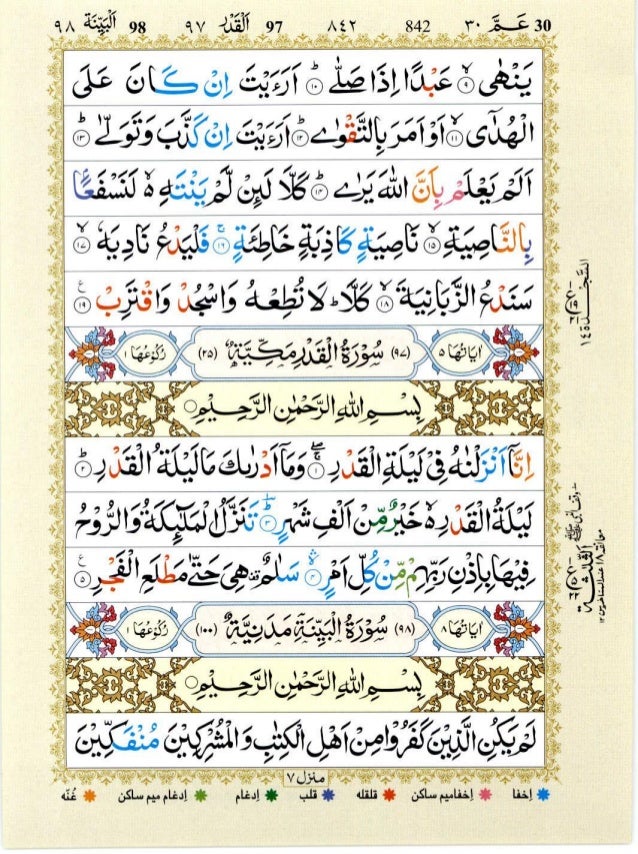 30 عَمَّ ٣٠ 842 ٨٤٢ 97 اَلْقَدْر ٩٧ 98 اَلْبَيِّنَة ٩٨
يَنْهٰى ۙ﴿۹﴾ عَبْدًا اِذَا صَلّٰى ؕ﴿۱۰﴾ اَرَءَيْتَ اِنْ كَانَ عَلَى
الْهُدٰٓى ۙ﴿۱۱﴾ اَوْ اَمَرَ بِالتَّقْوٰى ؕ﴿۱۲﴾ اَرَءَيْتَ اِنْ كَذَّبَ وَتَوَلّٰى ؕ﴿۱۳﴾
اَلَمْ يَعْلَمْ بِاَنَّ اللّٰهَ يَرٰى ؕ﴿۱۴﴾ كَلَّا لَئِنْ لَّمْ يَنْتَهِ ۙ۬ لَنَسْفَعًۢا
بِالنَّاصِيَةِ ۙ﴿۱۵﴾ نَاصِيَةٍ كَاذِبَةٍ خَاطِئَةٍ ۚ﴿۱۶﴾ فَلْيَدْعُ نَادِيَهٗ ۙ﴿۱۷﴾
سَنَدْعُ الزَّبَانِيَةَ ۙ﴿۱۸﴾ كَلَّا ؕ لَا تُطِعْهُ وَاسْجُدْ وَاقْتَرِبْ ﴿۱۹﴾ ع
السَّجْدَة ١٤
اٰيَاتُهَا ٥ (٩٧) سُوْرَةُ الْقَدْرِ مَكِّيَّةٌ (٢٥) رُكُوْعُهَا ١
بِسْمِ اللّٰهِ الرَّحْمٰنِ الرَّحِيْمِ
اِنَّآ اَنْزَلْنٰهُ فِيْ لَيْلَةِ الْقَدْرِ ۚۖ﴿۱﴾ وَمَآ اَدْرٰىكَ مَا لَيْلَةُ الْقَدْرِ ؕ﴿۲﴾
لَيْلَةُ الْقَدْرِ ۙ۬ خَيْرٌ مِّنْ اَلْفِ شَهْرٍ ؕ﴿۳﴾ تَنَزَّلُ الْمَلٰٓئِكَةُ وَالرُّوْحُ
فِيْهَا بِاِذْنِ رَبِّهِمْ مِّنْ كُلِّ اَمْرٍ ۛۙ﴿۴﴾ سَلٰمٌ ۛ۟ هِيَ حَتّٰى مَطْلَعِ الْفَجْرِ ﴿۵﴾ ع
اٰيَاتُهَا ٨ (٩٨) سُوْرَةُ الْبَيِّنَةِ مَدَنِيَّةٌ (١٠٠) رُكُوْعُهَا ١
بِسْمِ اللّٰهِ الرَّحْمٰنِ الرَّحِيْمِ
لَمْ يَكُنِ الَّذِيْنَ كَفَرُوْا مِنْ اَهْلِ الْكِتٰبِ وَالْمُشْرِكِيْنَ مُنْفَكِّيْنَ
منزل ٧
إخفا إخفامیم ساكن قلقله قلب إدغام إدغام میم ساكن غُنّه